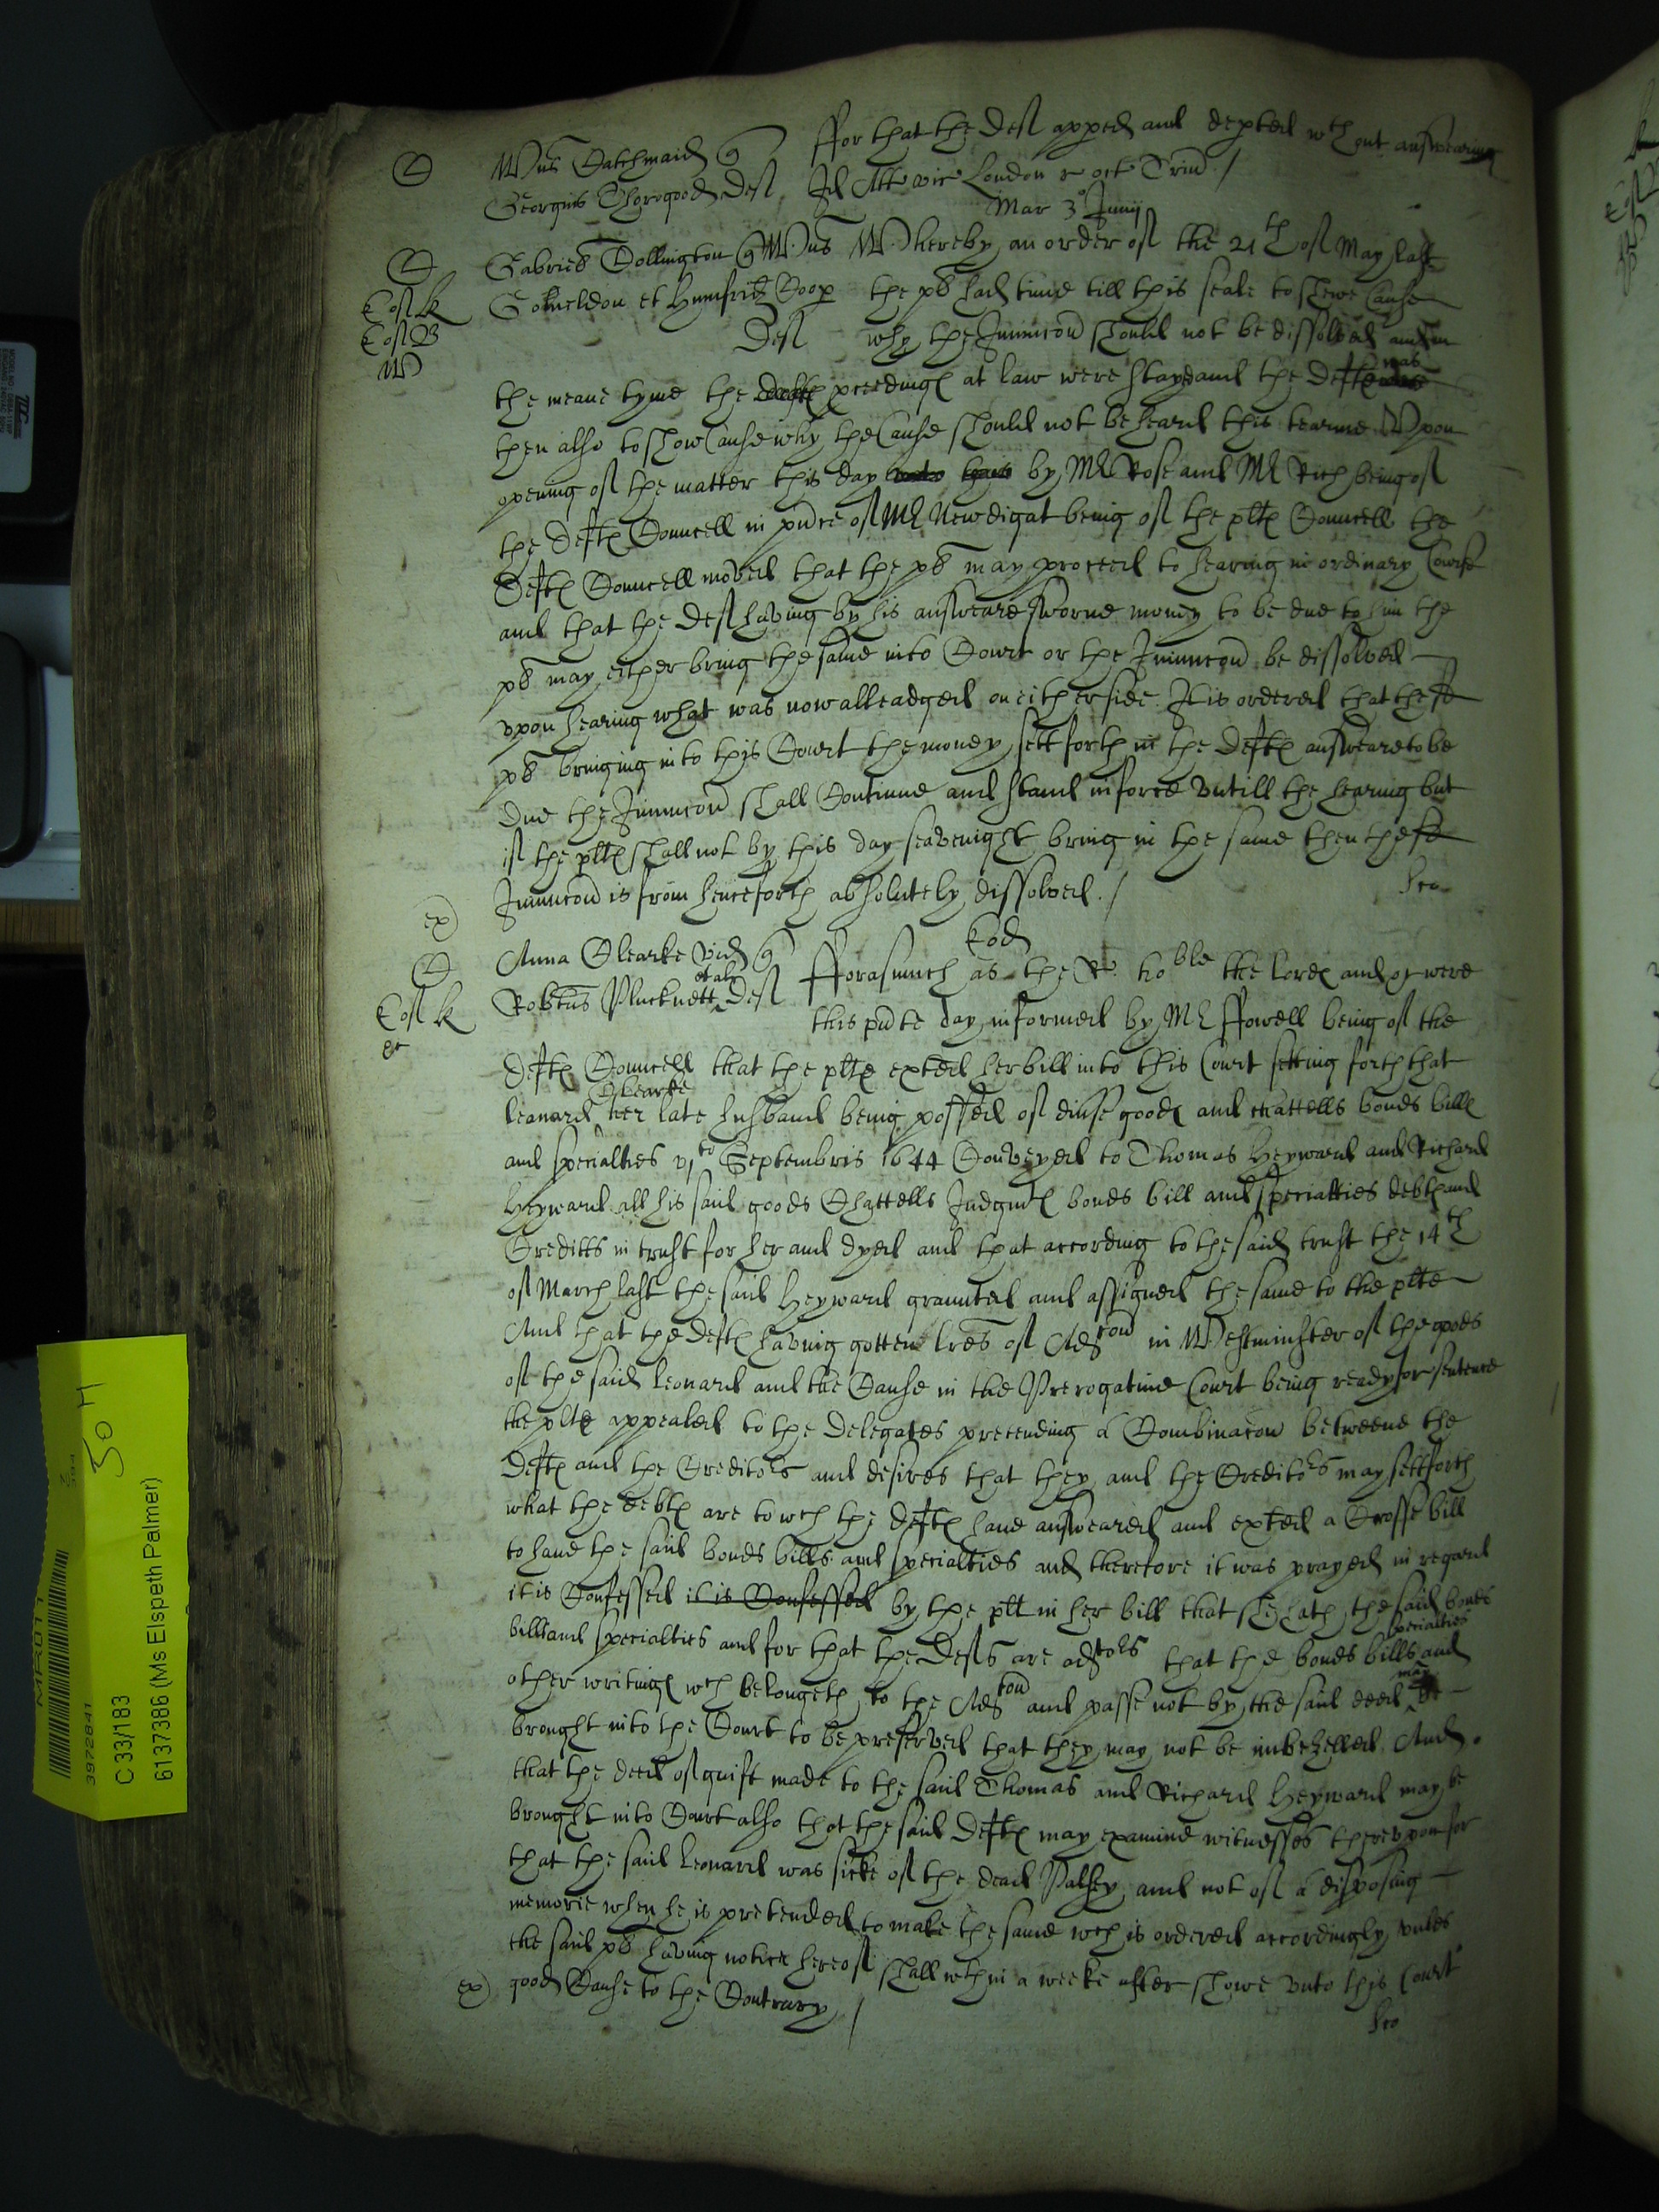 Wms Catchmaid q ffor that the Deft apped and depted wth out answearing
Georgius Thorogood Deft Id Att vic London r oct Trin /
Mar 3° Junij
Gabriel Collington q Wms Whereby an order of the 21th of May last
et Humfrid the pl had time till this seale to shewe Cause
Deft why the Iniuncon should not be dissolved and in
the meane tyme the pceedings at law were stayd and the Deft was
then also to show Cause why the Cause should not be heard this tearme Vpon
opening of the matter this day by Mr Rose and Mr Rich being of
the Defts Councell in pnce of Mr Newdigat being of the plts Councell the
Defts Councell moved that the pl may proceed to hearing in ordinary Course
and that the Deft having by his answeare sworne money to be due to him the
pl may either bring the same into Court or the Iniuncon be dissolved
vpon hearing what was now alleadged on either side It is ordered that the
pl bringing into this Court the money sett forth in the Defts answeare to be
due the Iniuncon shall Continue and stand in force vntill the hearing but
if the plts shall not by this day seavenight bring in the same then the
Iniuncon is from henceforth absolutely dissolved /
ex
Eod
Anna Clearke Vid q fforasmuch as the Rt hoble the lords and were
Robtus Plucknett et al Deft this pnte day informed by Mr ffowell being of the
Defts Councell that the plte exted her bill into this Court setting forth that
Leonard Clearke her late husband being possed of diuse goods and chattells bonds bills
and specialties vjto Septembris 1644 Conveyed to Thomas Heyward and Richard
Heyward all his said goods Chattells Judgmts bonds bill and specialties debts and
Creditts in trust for her and dyed and that according to the said trust the 14th
of March last the said Heyward graunted and assigned the same to the plte
And that the Defts having gotten lres of Adcon in Westminster of the goods
of the said Leonard and the Cause in the Prerogatiue Court being ready for sentence
the plte appealed to the Delegates pretending a Combinacon betweene the
Defts and the Creditors and desires that they and the Creditors may sett forth
what the debts are to wch the defts haue answeared and exted a Crosse bill
to haue the said bonds bills and specialties and therefore it was prayed in regard
it is Confessed it is Confessed by the plt in her bill that she hath the said bonds
bills and specialties and for that the Defts are adtors that the bonds bills specialties and
other writings wch belongeth to the Adcon and passe not by the said deed may be
brought into the Court to be preserved that they may not be imbezelled And
that the deed of guift made to the said Thomas and Richard Heyward may be
brought into Court also that the said Defts may examine witnesses therevpon for
that the said Leonard was sicke of the dead Palsey and not of a disposing
memorie when he is pretended to make the same wch is ordered accordingly vnles
the said pl having notice hereof shall wthin a weeke after showe vnto this Court
ex good Cause to the Contrary /
MR011
3972841
C 33/183
6137386 (Ms Elspeth Palmer)